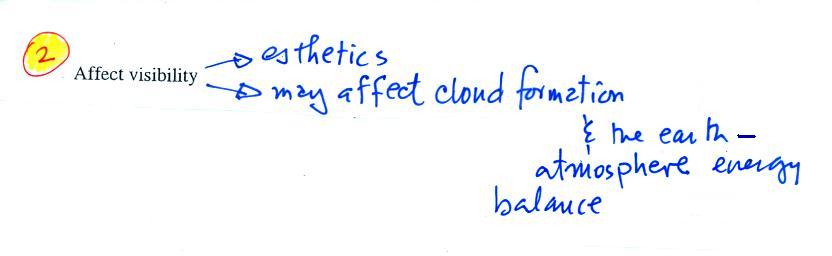 2
Affect visibility
esthetics
may affect cloud formation
& the earth -
atmosphere energy
balance